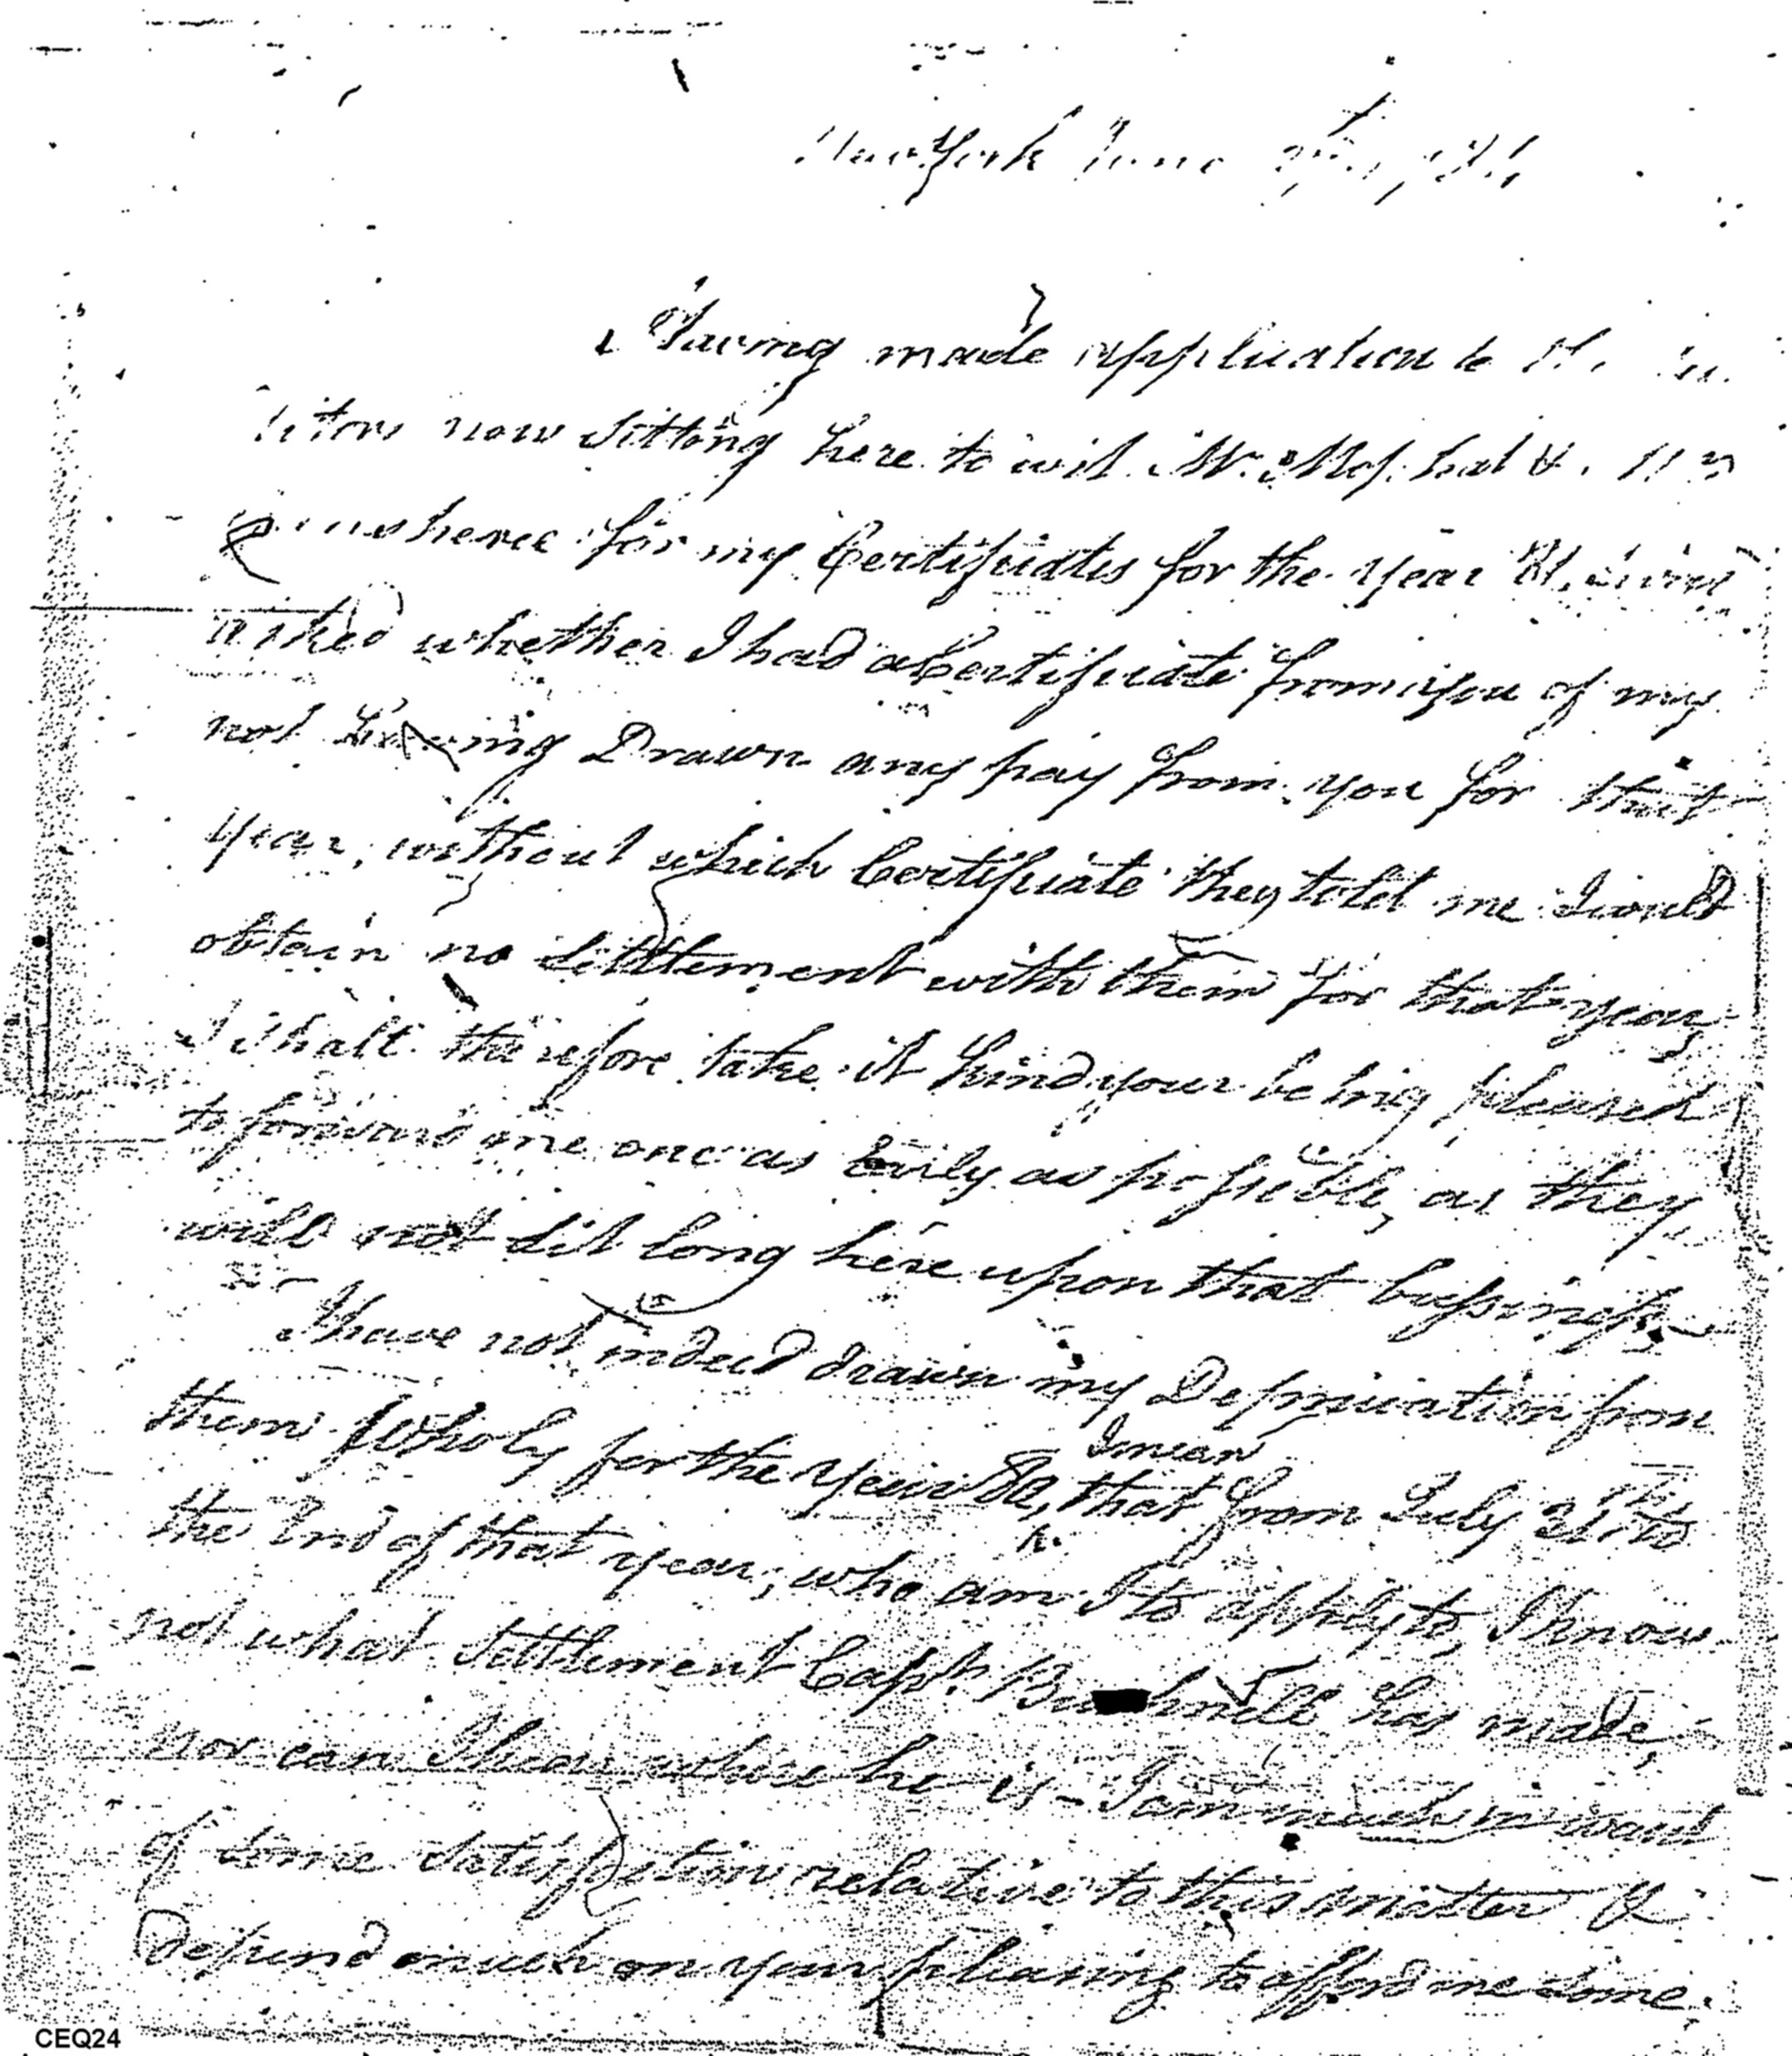 New York June
Having made application to
now Sitting here to wit Mr.
for my Certificates for the year 81. I was
asked whether I had a Certificate from you of my
not having Drawn any pay from you for that
year, without which Certificate they told me I could
obtain no Settlement with them for that year
I shall therefore take it kind your being pleased
to forward me one as Early as possible, as they
will not Sit long here upon that bussiness,
I have not indeed drawn my Depreciation from
them Wholy for the year 80, I mean that from July 31st to
the End of that year, who am I to apply to, I know
not what Settlement Capt. Bushnell has made,
nor can I hear where he is - I am much in want
of some Satisfaction relative to this matter &
Depend much on your pleasing to afford me some
CEQ24